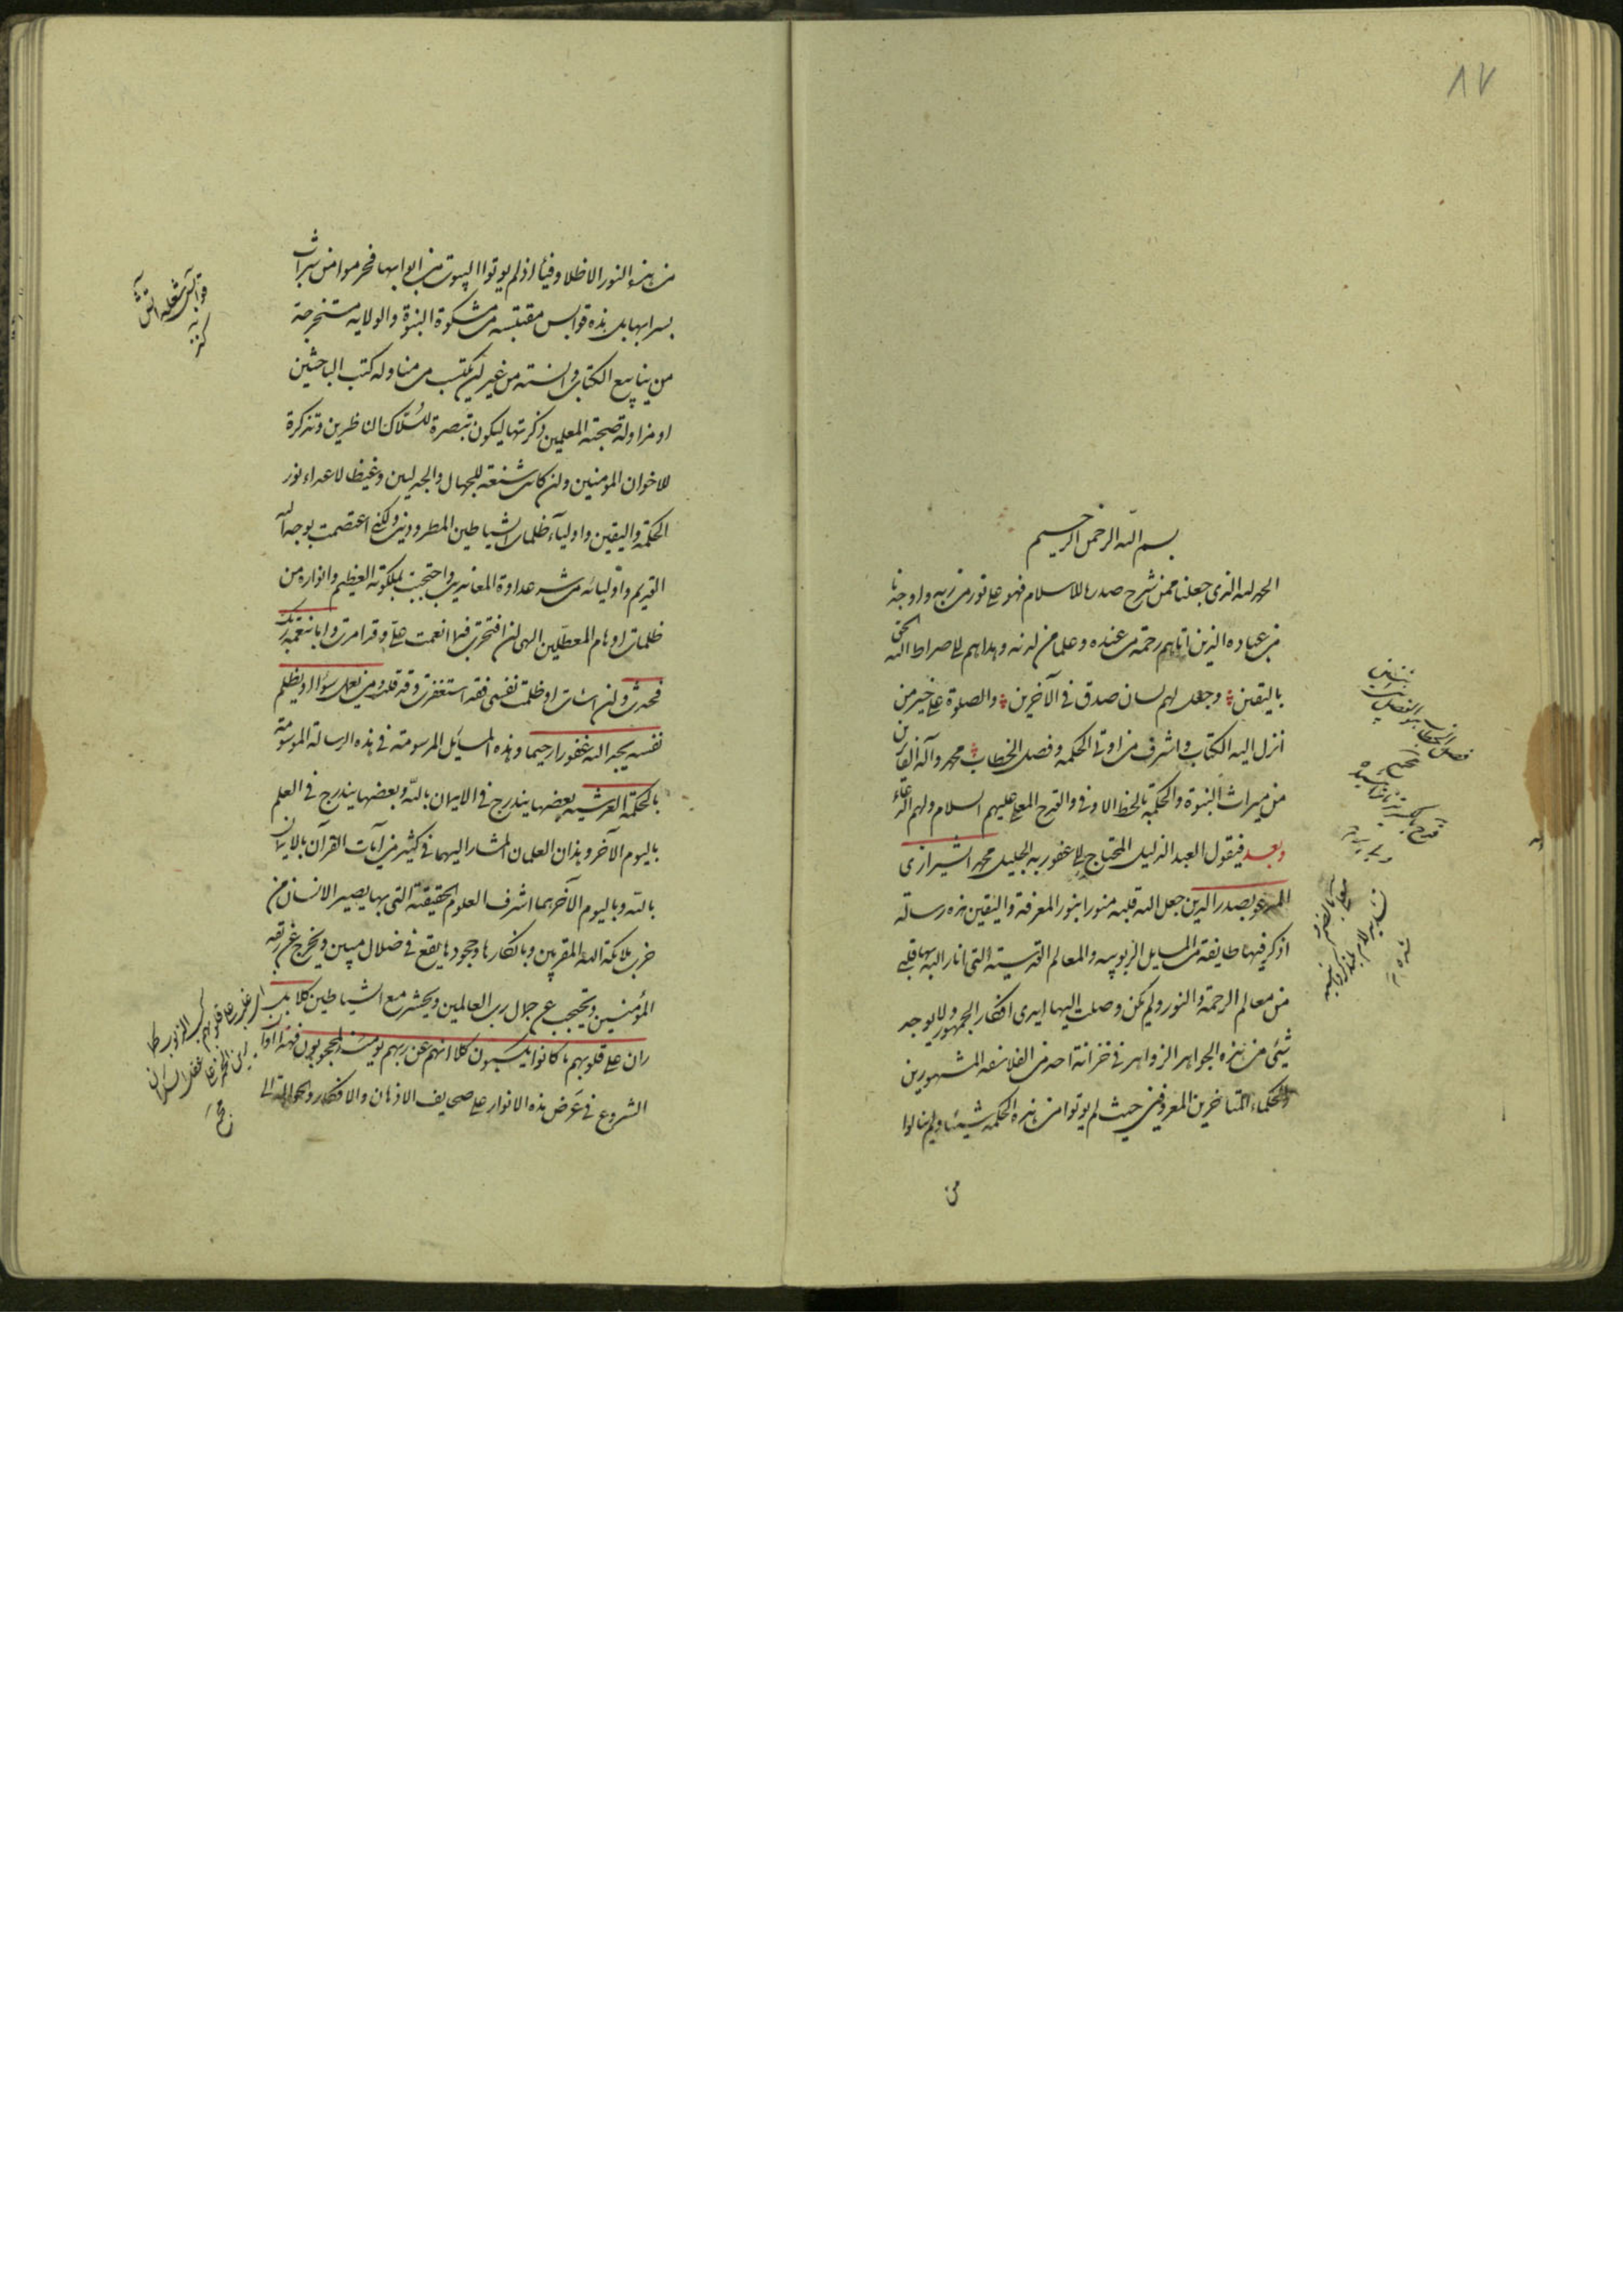 ٨٧
بسم الله الرحمن الرحيم
الحمد لله الذى جعلنا ممن شرح صدره للاسلام فهو على نور من ربه واوجدنا
من عباده الذين اتاهم رحمة من عنده وعلما من لدنه وهداهم الى صراط الله الحق
باليقين وجعل لهم لسان صدق فى الآخرين والصلوة على خير من
انزل اليه الكتاب واشرف من اوتى الحكمة وفصل الخطاب محمد وآله الفائزين
من ميراث النبوة والحكمة بالحظ الاوفى والقدح المعلى عليهم السلام ولهم الدعاء
وبعد فيقول العبد الذليل المحتاج الى عفو ربه الجليل محمد الشيرازى
المدعو بصدر الدين جعل الله قلبه منورا بنور المعرفة واليقين هذه رسالة
اذكر فيها طايفة من المسايل الربوبيه والمعالم القدسية التى انار الله بها قلبى
من معالم الرحمة والنور ولم يكن وصلت اليها ايدى افكار الجمهور ولا يوجد
شئ من هذه الجواهر الزواهر فى خزانة احد من الفلاسفه المشهورين
والحكماء المتاخرين المعروفين حيث لم يوتوا من هذه الحكمة شيئا ولم ينالوا
من
من هذا النور الا ظلا وفيئا اذ لم يوتوا البيوت من ابوابها فحرموا من شراب
بسرابها بل هذه قوابس مقتبسه من مشكوة النبوة والولايه مستخرجة
من ينابيع الكتاب والسنة من غير ان يكتسب من مناوله كتب الباحثين
او مزاولة صحبة المعلمين ذكرتها ليكون تبصرة للسلاك الناظرين وتذكرة
للاخوان المومنين وان كانت شنعة للجهال والجدليين وغيظا لاعداء نور
الحكمة واليقين واولياء ظلمات الشياطين المطرودين ولكنى اعتصمت بوجه الله
القديم واوليائه من شر عداوة المعاندين واحتجبت بملكوته العظيم وانواره من
ظلمات اوهام المعطلين الهى ان افتخرت فبما انعمت على وقد امرت واما بنعمة ربك
فحدث وان اسات او ظلمت نفسى فقد استغفرت وقد قلت ومن يعمل سوءا او يظلم
نفسه يجد الله غفورا رحيما وهذه المسايل المرسومة فى هذه الرسالة الموسومة
بالحكمة العرشيه بعضها يندرج فى الايمان بالله وبعضها يندرج فى العلم
باليوم الآخر وهذان العلمان المشار اليهما فى كثير من آيات القرآن بالايمان
بالله وباليوم الآخر هما اشرف العلوم الحقيقة التى بها يصير الانسان من
حزب ملائكة الله المقربين وبانكارها وجحودها يقع فى ضلال مبين ويخرج عن ربقه
المؤمنين ويحتجب عن جلال رب العالمين ويحشر مع الشياطين كلا بل
ران على قلوبهم ما كانوا يكسبون كلا انهم عن ربهم يومئذ لمحجوبون فهذا اوان
الشروع فى عرض هذه الانوار على صحايف الاذهان والافكار والحوالة الى